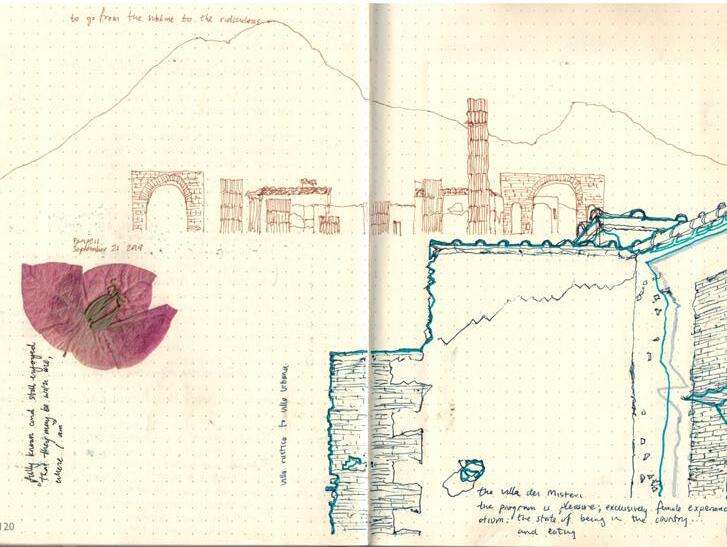 to go from the sublime to the ridiculous
Pompeii
September 21 2019
fully known and still enjoyed
that they may be with me,
where I am
villa rustica to villa urbana
the villa dei Misteri.
the program is pleasure; exclusively female experience
otium: the state of being in the country...
and eating
120